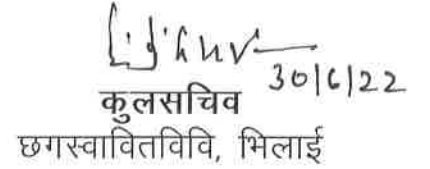 30/6/22
कुलसचिव
छगस्वावितविवि, भिलाई